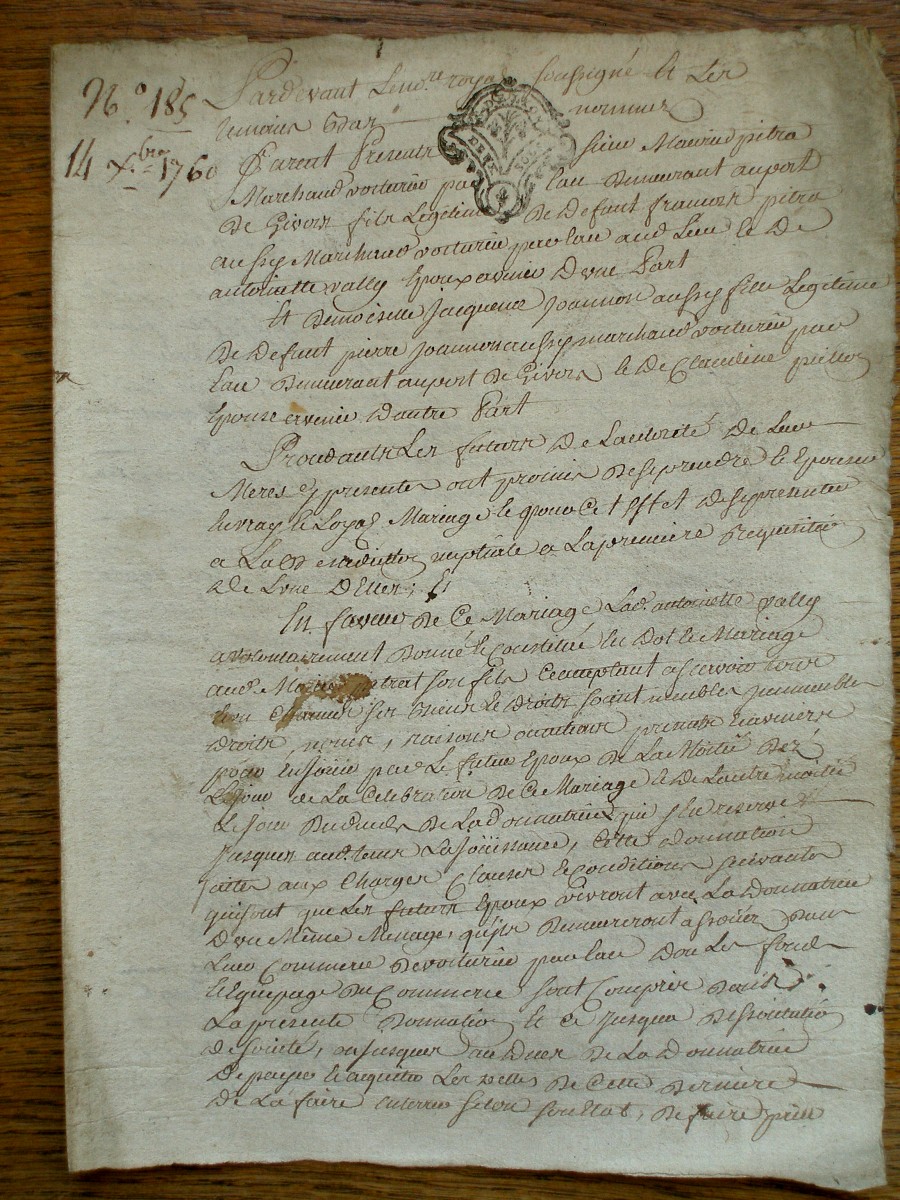 N.º 185
14 Xbre 1760
Pardevant Le no.re royal soussigné et Les
temoins bas nommez
Furent Presents sieur Maurice pitra
Marchand voiturier par eau Demeurant au port
De Givors fils Legitime De Defunt françois pitra
aussy Marchand voiturier par eau aud. Lieu et De
antoinette vally Epoux avenir D'une Part
Et Demoiselle Jacquence Joannon aussy fille Legitime
De Defunt pierre Joannon aussy marchand voiturier par
Eau Demeurant au port De Givors et De Claudine
Epouse avenir D'autre Part
Procedants Les futurs De L'autorité De Leurs
Meres cy presentes ont promis De se prendre et Epouser
En vray et Loyal Mariage et pour Cet Effet De se presenter
a La Benediction nuptiale a La premiere Requisition
De L'une D'elles; Et
En faveur De Ce Mariage Lad. antoinette vally
a volontairement Donné et Constitué En Dot et Mariage
aud. Maurice pitrat son fils Ceacceptant a scavoir tous
Et Chacuns ses Biens et Droits soient meubles jmmeubles
Droits, noms, raisons et actions presents et avenirs
pour En Jouir par Le futur Epoux De La Moitié Dez
Le jour De La Celebration De Ce Mariage et De L'autre moitié
Le Jour Du deces De La Donnatrice qui s'En reserve
Jusques aud. tems La Joüissance, Cette Donnation
faitte aux Charges Clauses et Conditions suivantes
qui sont que Les futurs Epoux vivront avec La Donnatrice
D'un Même Menage, qu'jls Demeureront associez Dans
Leur Commerce De voiturier par Eau Dont Les fonds
Et Equipage Du Commerce sont Compris Dans
La presente Donnation Et Ce Jusqu'a Dissolution
De societé, ou jusques au Deces De La Donnatrice
De payer et aquitter Les Dettes De Cette Derniere
De La faire Enterrer selon son Etat, De faire prier